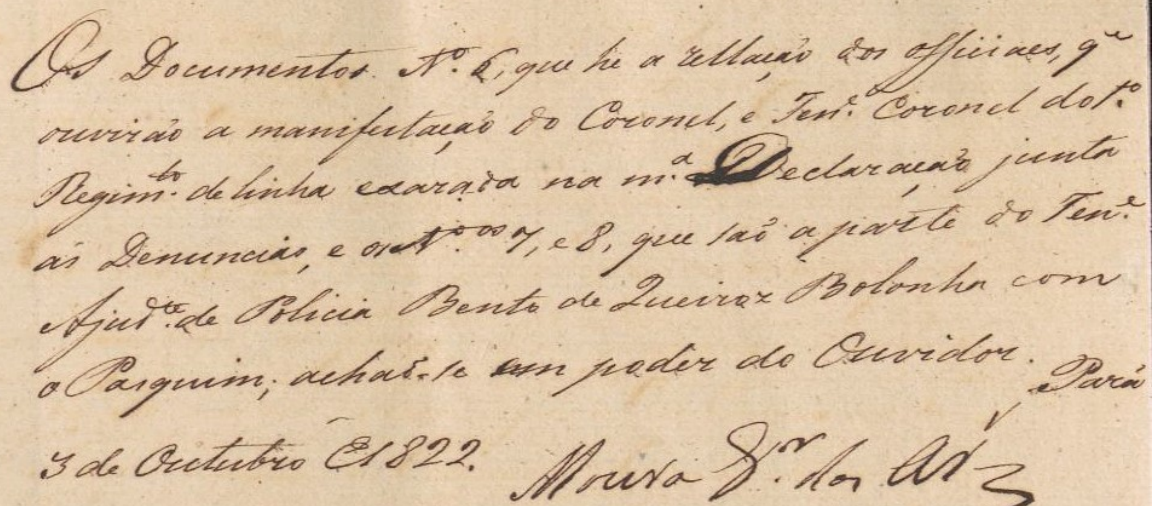 Os Documentos N.º 6, que he a rellação dos officiaes, q̃
ouvirão a manifestação do Coronel, e Ten.e Coronel do 1.º
Regim.to de linha exarada na m.a Declaração junta
ás Denuncias, e os N.os 7, e 8, que são a parte do Ten.e
Ajud.te de Policia Bento de Queiroz Bolonha com
o Pasquim; achão-se em poder do Ouvidor. Pará
3 de Outubro de 1822.
Moura G.or das Ar